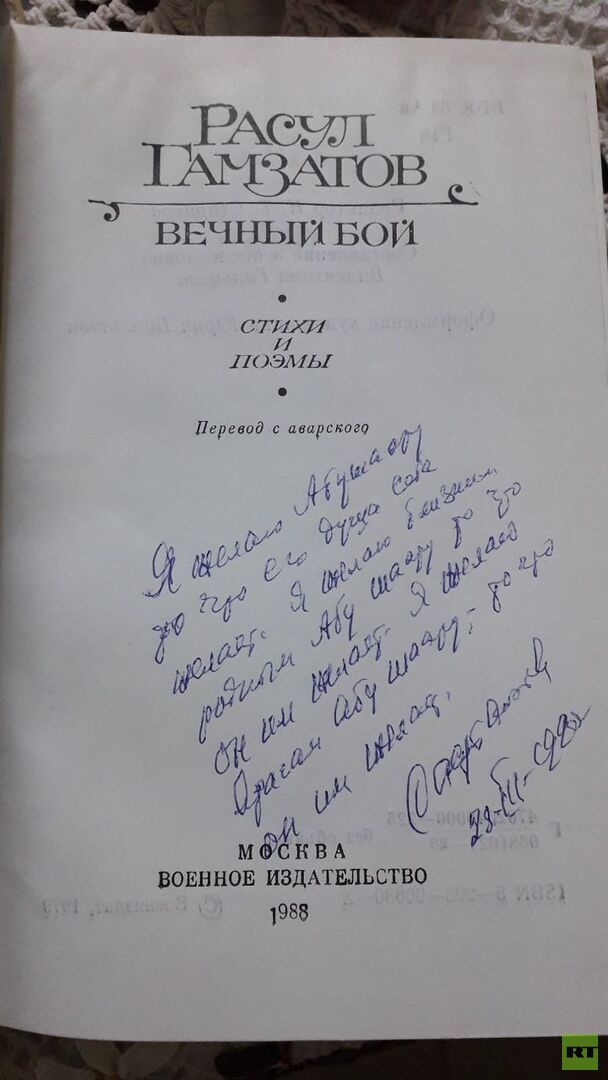 РАСУЛ
ГАМЗАТОВ
ВЕЧНЫЙ БОЙ
СТИХИ
И
ПОЭМЫ
Перевод с аварского
Я желаю Абушаару
то что его душа сама
желает. Я желаю близким
родным Абу шаару то что
он им желает. Я желаю
врагам Абу шаару, то что
он им желает.
МОСКВА
ВОЕННОЕ ИЗДАТЕЛЬСТВО
1988
RT